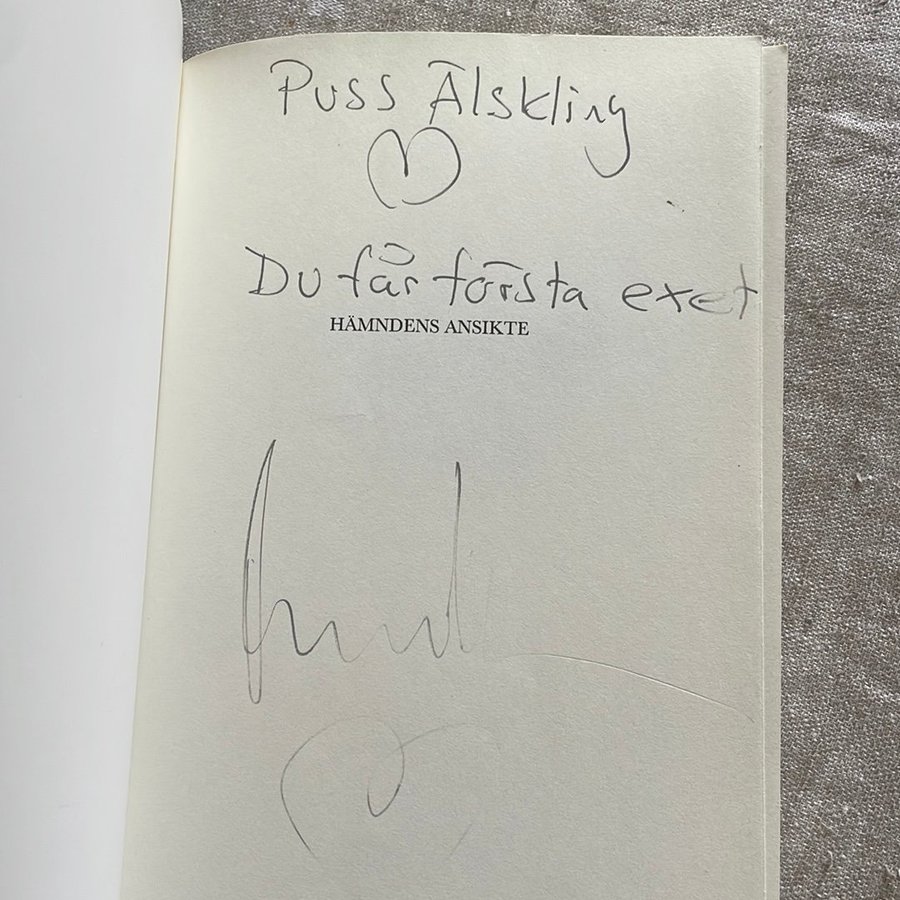 Puss Älskling
Du får första exet
HÄMNDENS ANSIKTE